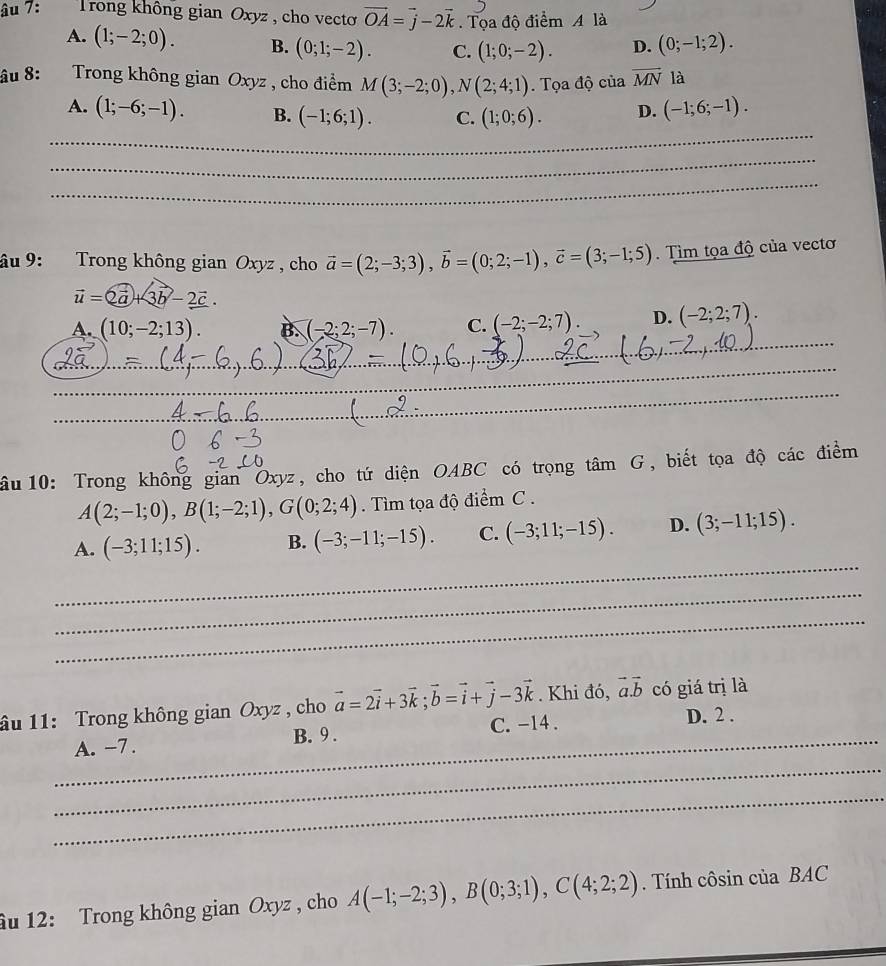 âu 7: Trong không gian Oxyz , cho vectơ $\overrightarrow{OA}=\vec{j}-2\vec{k}$ . Tọa độ điểm A là
A. (1;−2;0). B. (0;1;−2). C. (1;0;−2). D. (0;−1;2).
âu 8: Trong không gian Oxyz , cho điểm M(3;−2;0), N(2;4;1). Tọa độ của $\overrightarrow{MN}$ là
A. (1;−6;−1). B. (−1;6;1). C. (1;0;6). D. (−1;6;−1).
âu 9: Trong không gian Oxyz , cho $\vec{a}$ = (2;−3;3), $\vec{b}$ = (0;2;−1), $\vec{c}$ = (3;−1;5). Tìm tọa độ của vectơ
$\vec{u}=2\vec{a}+3\vec{b}-2\vec{c}$ .
A. (10;−2;13). B. (−2;2;−7). C. (−2;−2;7). D. (−2;2;7).
$2\vec{a}$ = (4,−6,6) $3\vec{b}$ = (0,6,−3) $2\vec{c}$ (6,−2,10)
4 −6 6 ( 2
0 6 −3
6 −2 10
âu 10: Trong không gian Oxyz , cho tứ diện OABC có trọng tâm G , biết tọa độ các điểm
A(2;−1;0), B(1;−2;1), G(0;2;4). Tìm tọa độ điểm C .
A. (−3;11;15). B. (−3;−11;−15). C. (−3;11;−15). D. (3;−11;15).
âu 11: Trong không gian Oxyz , cho $\vec{a}=2\vec{i}+3\vec{k}$ ; $\vec{b}=\vec{i}+\vec{j}-3\vec{k}$ . Khi đó, $\vec{a}.\vec{b}$ có giá trị là
A. −7 . B. 9 . C. −14 . D. 2 .
âu 12: Trong không gian Oxyz , cho A(−1;−2;3), B(0;3;1), C(4;2;2). Tính côsin của BAC